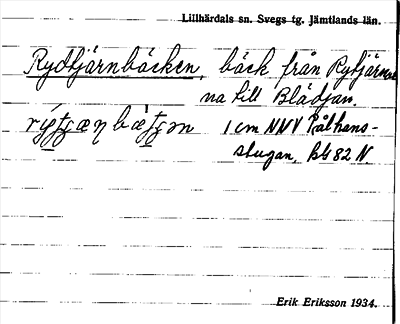 Lillhärdals sn. Svegs tg. Jämtlands län.
Rydtjärnbäcken, bäck från Rytjärnar
na till Blädjan.
1 cm NNV Pålhans-
stugan, bl 82 N.
Erik Eriksson 1934.